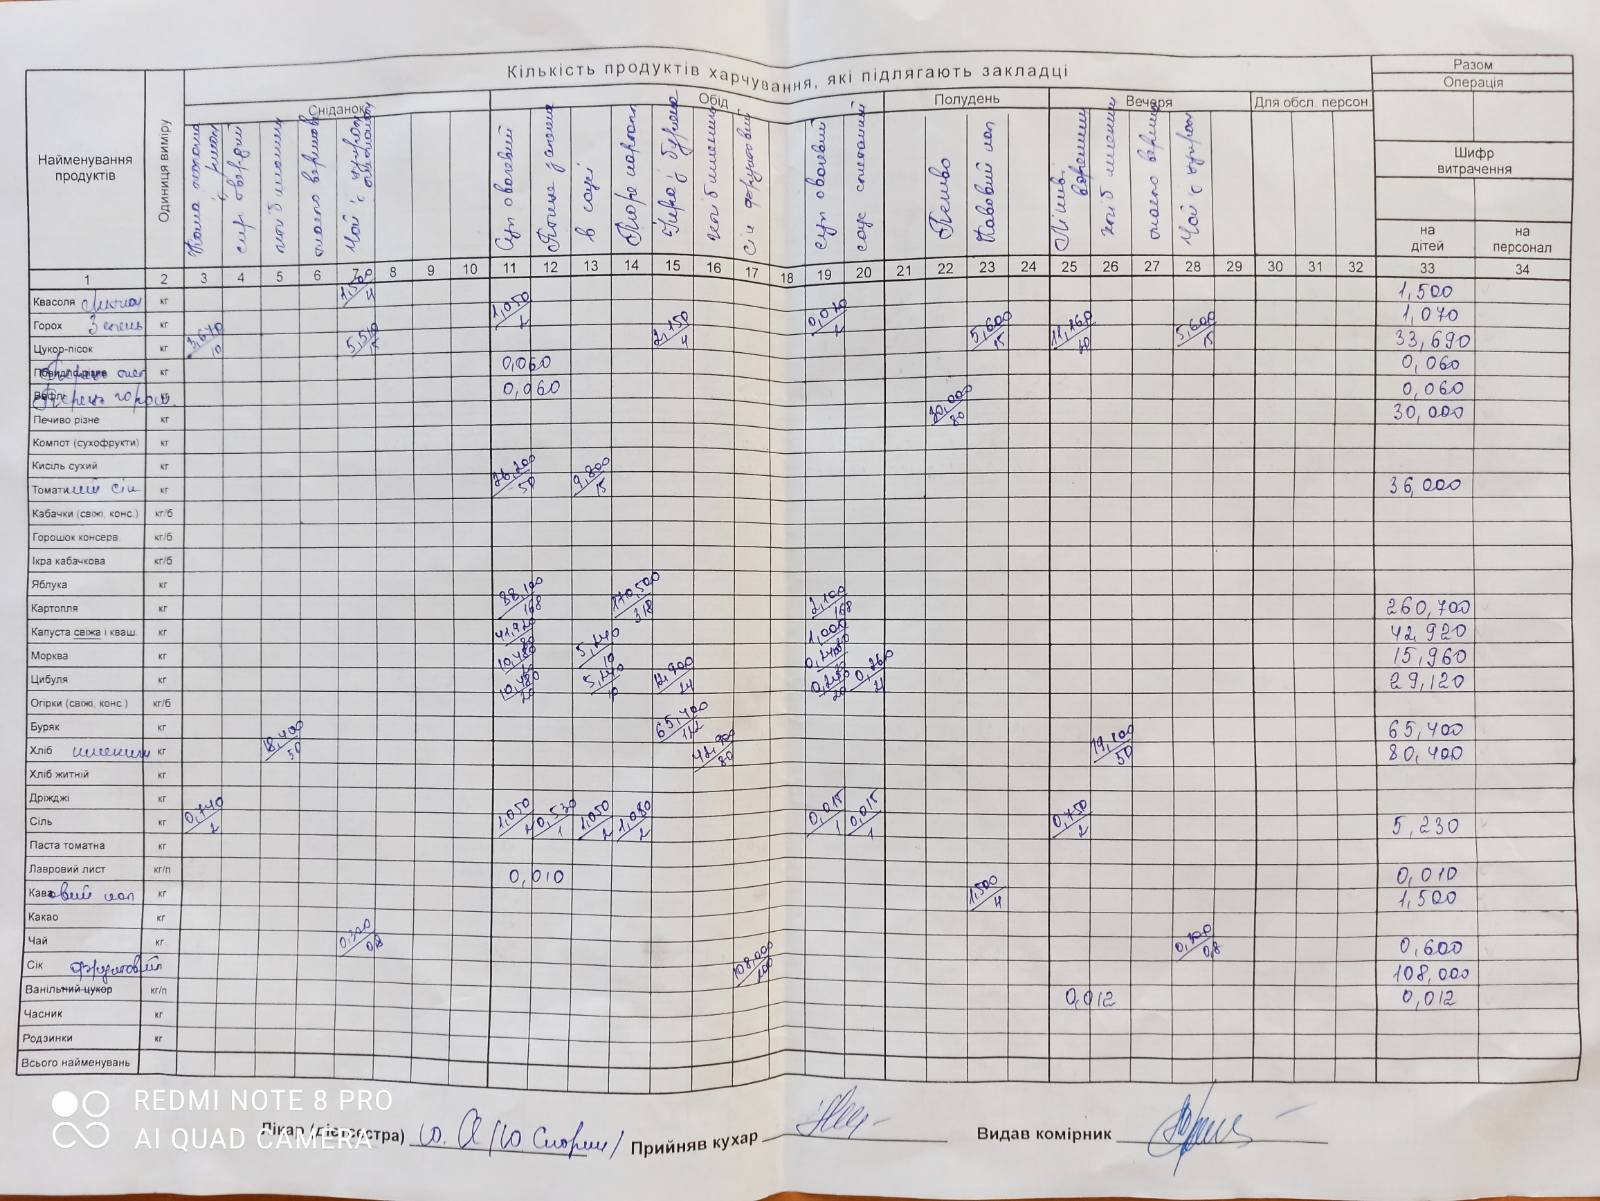 Кількість продуктів харчування, які підлягають закладці
Разом
Операція
Сніданок
Обід
Полудень
Вечеря
Для обсл. персон.
Найменування продуктів
Одиниця виміру
сир твердий
Чай з цукром
Суп овочевий
в соусі
Пюре картоп
Сік фруктовий
суп овочевий
соус сметанний
Печиво
Кавовий нап
Чай с цукром
Шифр витрачення
на дітей
на персонал
1 2 3 4 5 6 7 8 9 10 11 12 13 14 15 16 17 18 19 20 21 22 23 24 25 26 27 28 29 30 31 32 33 34
Квасоля кг 1,500/4 1,500
Горох Зелень кг 1,050/2 0,020/2 1,070
Цукор-пісок кг 3,670/10 5,510/15 2,150/4 5,600/15 11,160/30 5,600/15 33,690
кг 0,060 0,060
кг 0,060 0,060
Печиво різне кг 30,000/80 30,000
Компот (сухофрукти) кг
Кисіль сухий кг
Томатний сік кг 26,200/50 9,800/15 36,000
Кабачки (свіжі, конс.) кг/б
Горошок консерв. кг/б
Ікра кабачкова кг/б
Яблука кг
Картопля кг 88,100/168 170,500/318 2,100/168 260,700
Капуста свіжа і кваш. кг 41,920/80 1,000/80 42,920
Морква кг 10,480 5,240/10 0,240 15,960
Цибуля кг 10,480/20 5,240/10 12,900/24 0,240/20 0,260/21 29,120
Огірки (свіжі, конс.) кг/б
Буряк кг 65,400/122 65,400
Хліб пшеничн кг 18,400/50 42,900/80 19,100/50 80,400
Хліб житній кг
Дріжджі кг
Сіль кг 0,740/2 1,050/2 0,530/1 1,050/2 1,080/2 0,015/1 0,015/1 0,750/2 5,230
Паста томатна кг
Лавровий лист кг/п 0,010 0,010
Кавовий нап кг 1,500/4 1,500
Какао кг
Чай кг 0,300/0,8 0,300/0,8 0,600
Сік фруктовий л 108,000/200 108,000
Ванільний цукор кг/п 0,012 0,012
Часник кг
Родзинки кг
Всього найменувань
REDMI NOTE 8 PRO
AI QUAD CAMERA
Лікар (дієтсестра)
Прийняв кухар
Видав комірник